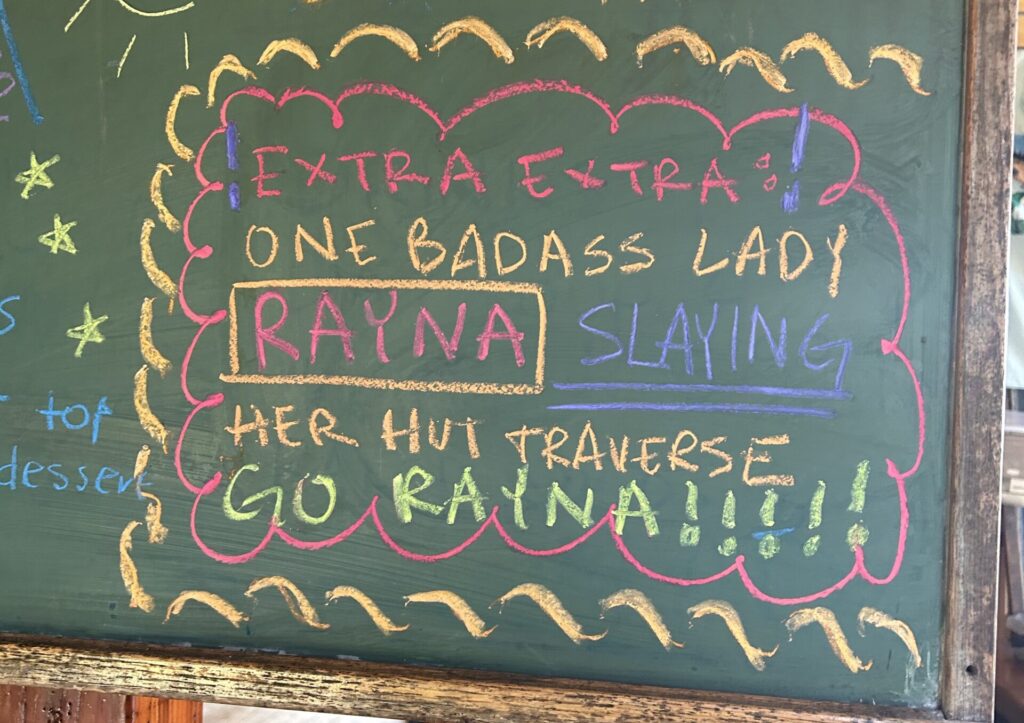 ! EXTRA EXTRA: !
ONE BADASS LADY
RAYNA SLAYING
HER HUT TRAVERSE
GO RAYNA!!!!!
top
dessert